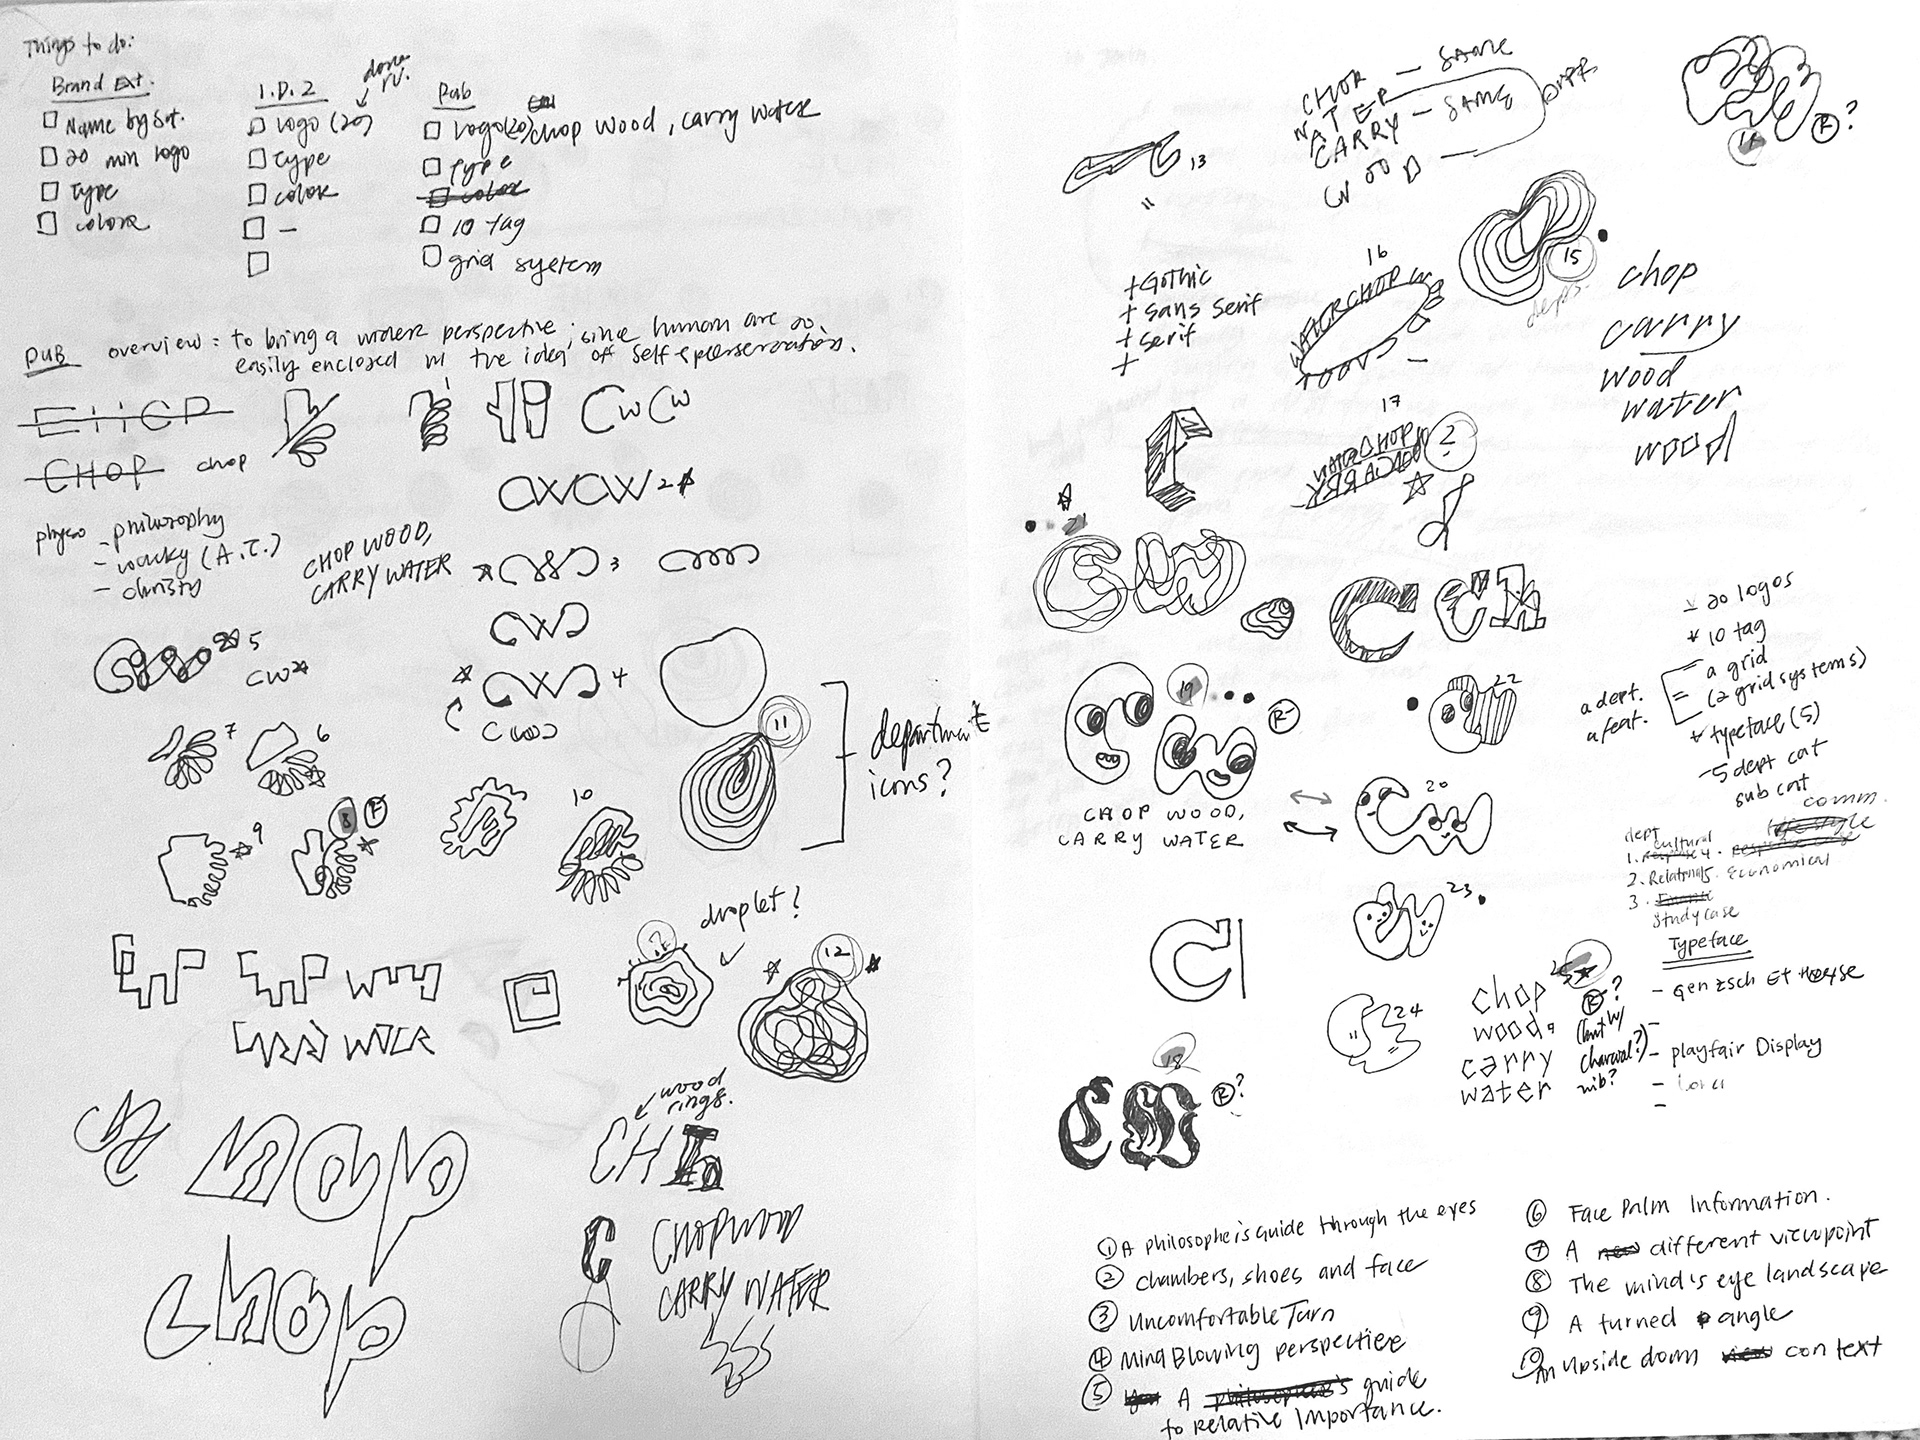 Things to do:
Brand Ext.
Name by Sat.
20 min logo
type
colors
I.D. 2
done
logo (20)
type
color
-
Pub
logo (20) chop wood, carry water
type
color
10 tag
grid system
PUB overview: to bring a wider perspective, since human are so
easily enclosed in the idea off self preservation.
CHOP chop
CWCW
CWCW 2
- philosophy
- wacky (A.T.)
- christy
CHOP WOOD,
CARRY WATER
3
CW
4
5
CW
7
6
8 R
9
10
11
department
icons?
droplet?
12
wood
rings.
CH
chop
C
CHOPWOOD
CARRY WATER
CHOP — SAME
WATER
CARRY — SAME
WOOD —
13
14
R?
15
depts.
+ Gothic
+ Sans Serif
+ Serif
+
16
WATERCHOP
17
2
chop
carry
wood
water
wood
21
CW
C
Ch
19
R
CHOP WOOD,
CARRY WATER
20
22
23
24
C
18
CW
R?
20 logos
10 tag
a grid
(2 grid systems)
a dept.
a feat.
typeface (5)
- 5 dept cat
sub cat
comm.
lifestyle
dept
cultural
1.
4.
2. Relations
5. Economical
3.
Study case
Typeface
- Genzsch Et Heyse
-
- playfair Display
- Lora
-
chop
wood,
carry
water
25
R?
(but w/
charcoal?)
nib?
① A philosopheis guide through the eyes
② chambers, shoes and face
③ Uncomfortable Turn
④ Mind Blowing perspective
⑤ A philosopher's guide
to Relative Importance.
⑥ Face Palm Information.
⑦ A new different viewpoint
⑧ The mind's eye landscape
⑨ A turned angle
⑩ An upside down view context